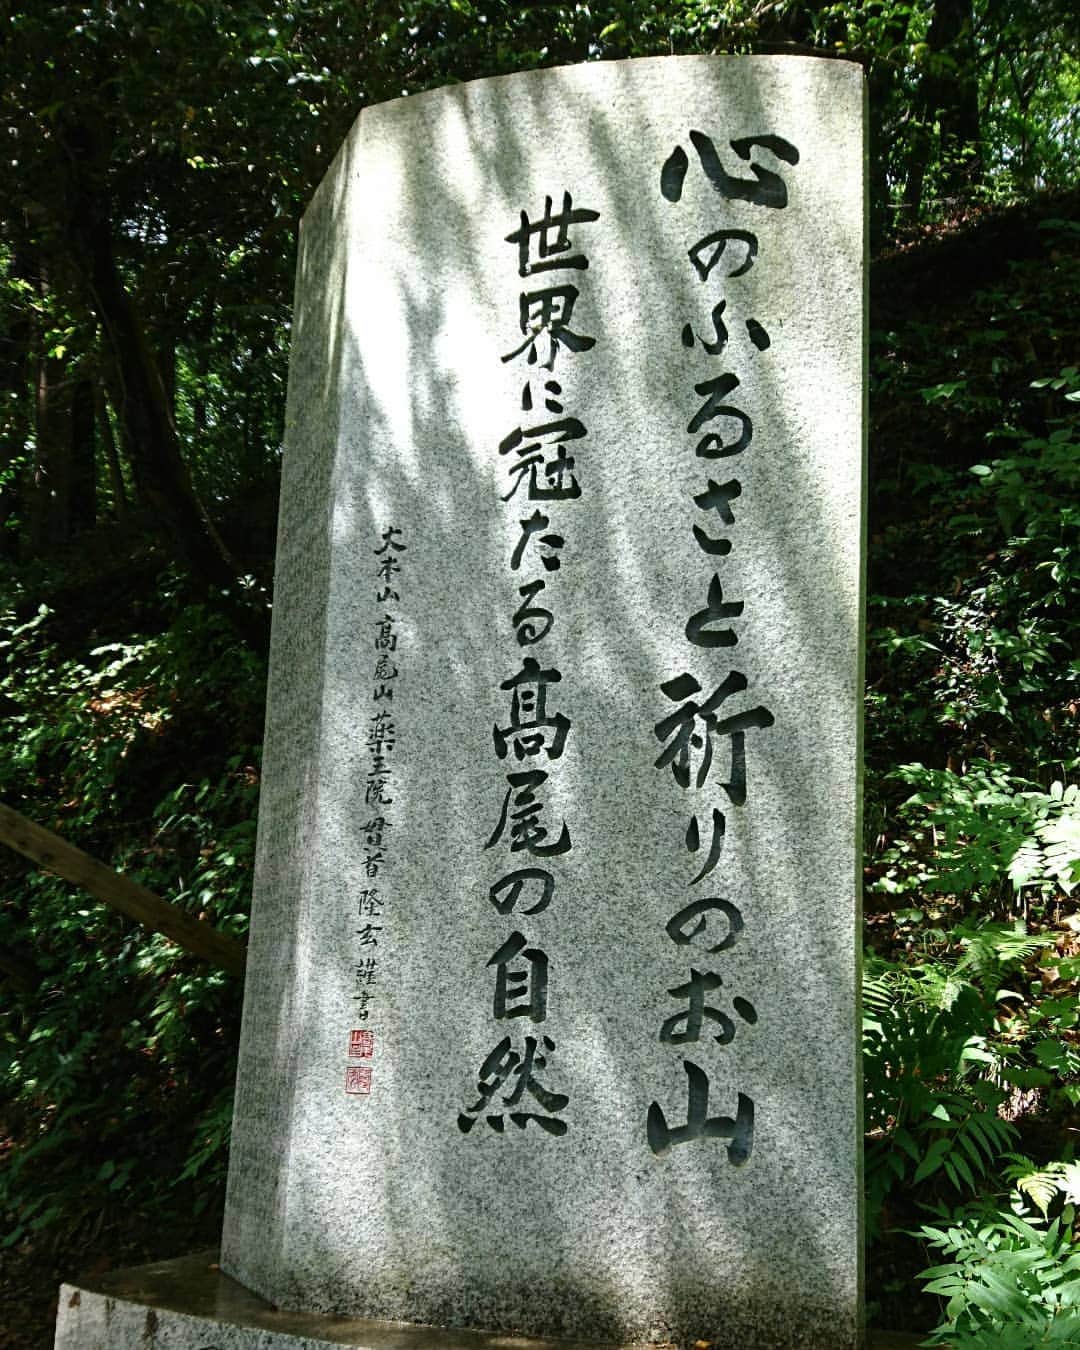 心のふるさと祈りのお山
世界に冠たる髙尾の自然
大本山 髙尾山 薬王院 貫首 隆玄 謹書